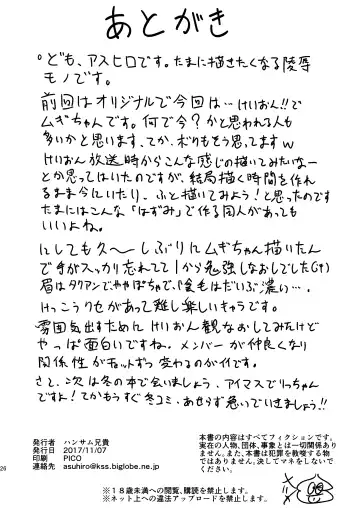 あとがき
ども、アスヒロです。たまに描きたくなる陵辱
モノです。
前回はオリジナルで今回は…けいおん!!で
ムギちゃんです。何で今?かと思われる人も
多いかと思います、てか、ボクもそう思ってますw
けいおん放送時からこんな感じの描いてみたいなー
とか思ってはいたのですが、結局描く時間を作れ
るまま今にいたり、ふと描いてみよう!と思ったのです
たまにはこんな「はずみ」で作る同人があっても
いいよね。
にしても久〜しぶりにムギちゃん描いたん
で手がスッカリ忘れてて1から勉強しなおしでした(汗)
眉はタクアンでややぽちゃで、毛はだいぶ濃い…、
けっこうクセがあって難し楽しいキャラです。
雰囲気出すためにけいおん観なおしてみたけど
やっぱ面白いですね。メンバーが仲良くなり
関係性がチョットずつ変わるのがイイです。
さて、次は冬の本で会いましょう、アイマスでりっちゃん
ですよ!てかもうすぐ冬コミ、あせらず急いでいきましょう!!
発行者 ハンサム兄貴
発行日 2017/11/07
印刷 PICO
連絡先 asuhiro@kss.biglobe.ne.jp
本書の内容はすべてフィクションです。
実在の人物、団体、事象とは一切関係あり
ません。また、本書は犯罪を教唆する物
ではありません。決してマネをしないで
ください。
26
※18歳未満への閲覧、購読を禁止します。
※ネット上への違法アップロードを禁止します。